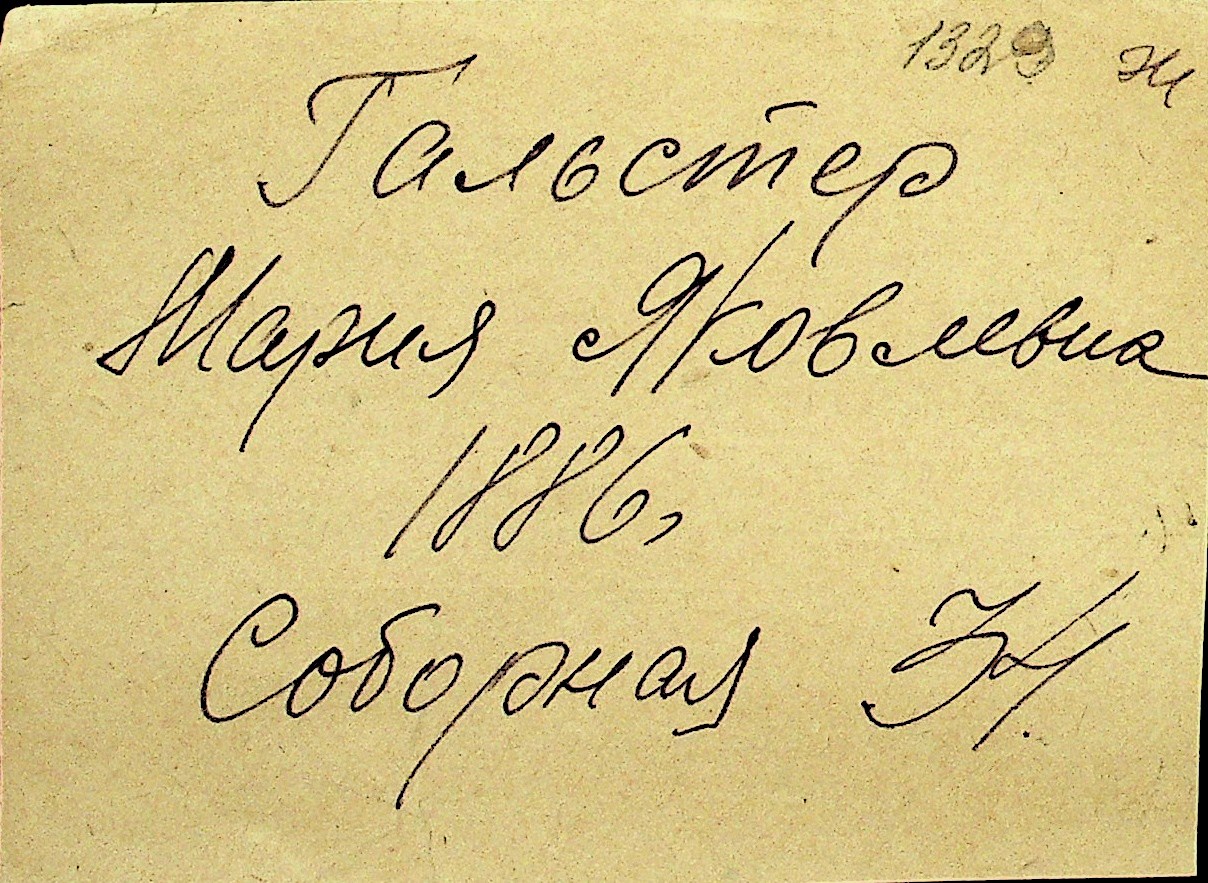 1329 ж
Гальстер
Мария Яковлевна
1886,
Соборная 34.